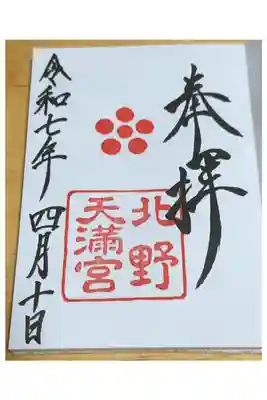 奉拝
北野
天満宮
令和七年
四月十日